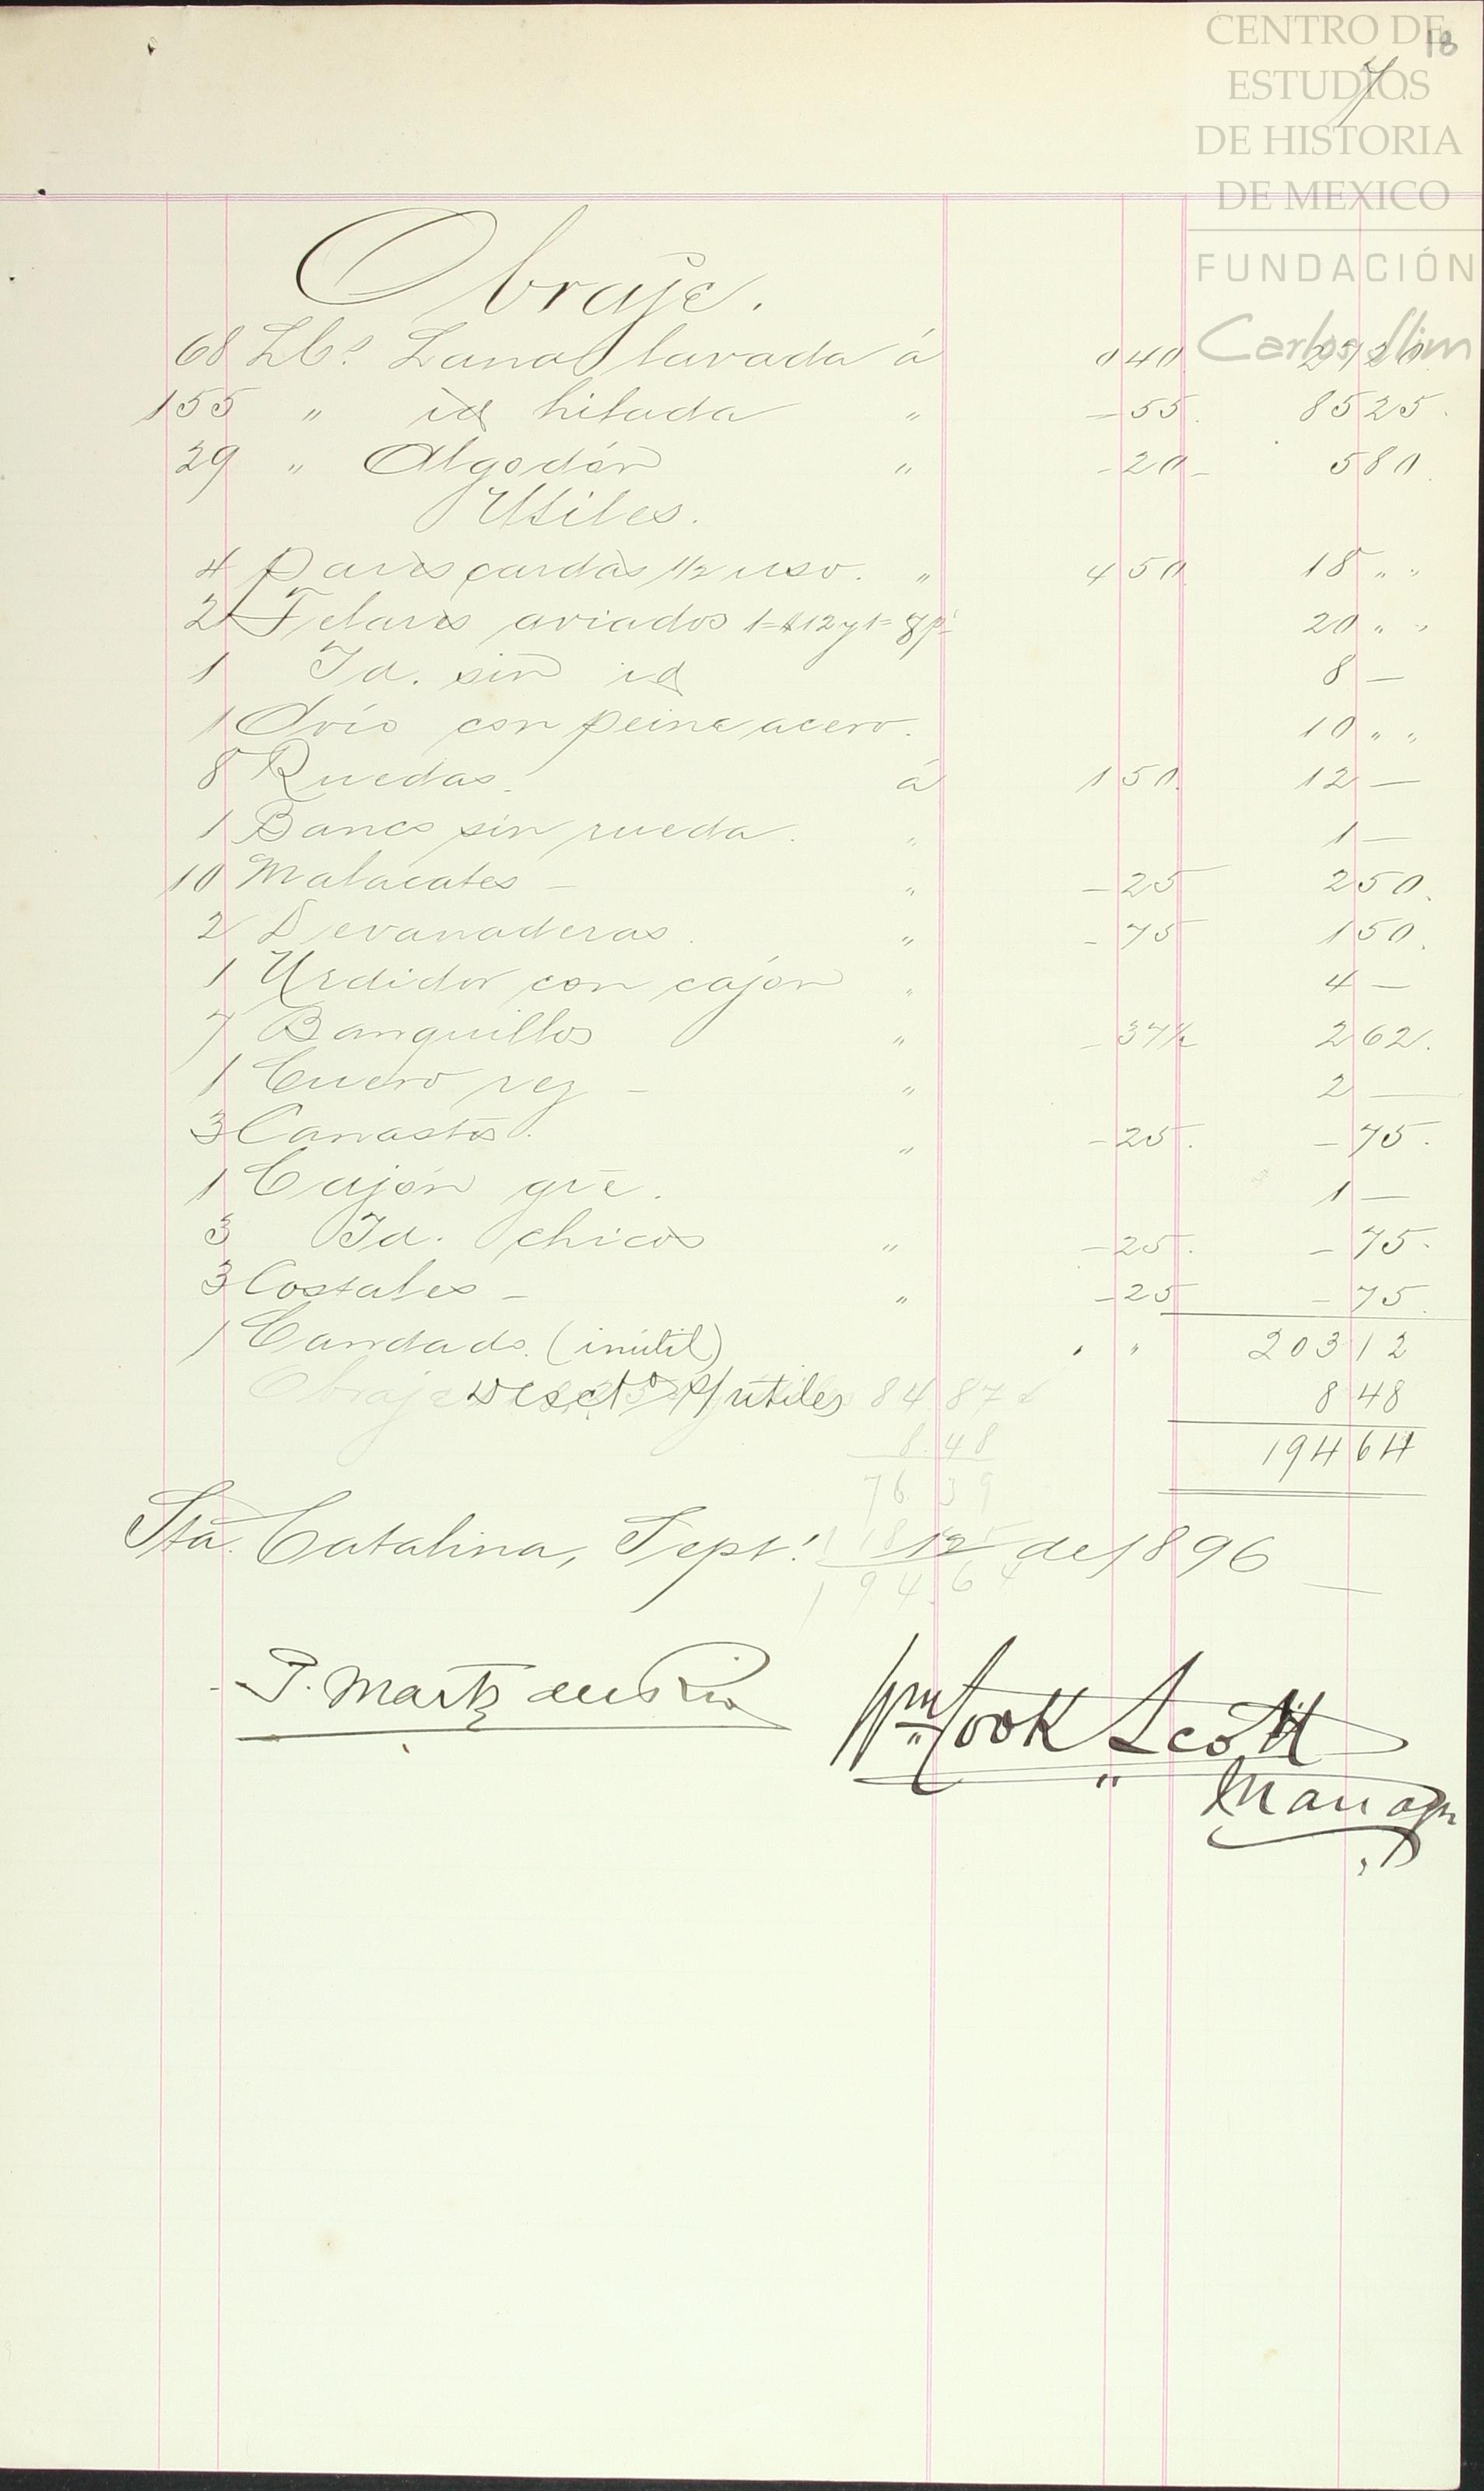 CENTRO DE
ESTUDIOS
DE HISTORIA
DE MEXICO
FUNDACIÓN
Carlos Slim
18
7
Obraje.
68 Lbs. Lana lavada á 0 40 27 20
155 " id hilada " - 55. 85 25.
29 " Algodón " - 20 - 5 80.
Utiles.
4 Pares cardas 1/2 uso. " 4 50 18 " "
2 Telares aviados 1= á 12 y 1= 8 ps 20 " "
1 Id. sin id 8 —
1 Avío con peine acero. 10 " "
8 Ruedas. á 1 50. 12 —
1 Banco sin rueda. " 1 —
10 Malacates - " - 25 2 50.
2 Devanaderas. " - 75 1 50.
1 Urdidor con cajon " 4 —
7 Banquillos " - 37 1/2 2 62.
1 Cuero rez - " 2 —
3 Canastos. " - 25. - 75.
1 Cajón gre. 1 —
3 Id. chicos " - 25. - 75.
3 Costales - " - 25 - 75.
1 Candado. (inútil) " " 203 12
Obraje Descto p/ utiles 84 87 8 48
8.48 194 64
76 39
118 25
194.64
Sta. Catalina, Sept. 12 de 1896
P. Martz del Rio
Wm Cook Scott
Manager